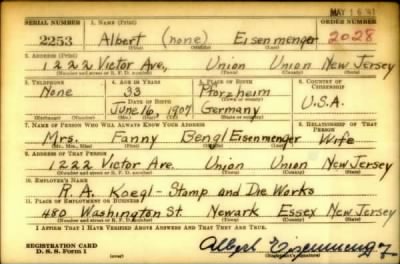 MAY 16 41
SERIAL NUMBER 1. NAME (Print) ORDER NUMBER
2253 Albert (none) Eisenmenger 2028
(First) (Middle) (Last)
2. ADDRESS (Print)
1222 Victor Ave, Union Union New Jersey
(Number and street or R. F. D. number) (Town) (County) (State)
3. TELEPHONE 4. AGE IN YEARS 5. PLACE OF BIRTH 6. COUNTRY OF CITIZENSHIP
None 33 Pforzheim
DATE OF BIRTH (Town or county)
June 16, 1907 Germany U.S.A.
(Mo.) (Day) (Yr.) (State or country)
7. NAME OF PERSON WHO WILL ALWAYS KNOW YOUR ADDRESS 8. RELATIONSHIP OF THAT PERSON
Mrs. Fanny Bengl Eisenmenger Wife
(Mr., Mrs., Miss) (First) (Middle) (Last)
9. ADDRESS OF THAT PERSON
1222 Victor Ave. Union Union New Jersey
(Number and street or R. F. D. number) (Town) (County) (State)
10. EMPLOYER'S NAME
R. A. Koegl - Stamp and Die Works
11. PLACE OF EMPLOYMENT OR BUSINESS
480 Washington St. Newark Essex New Jersey
(Number and street or R. F. D. number) (Town) (County) (State)
I AFFIRM THAT I HAVE VERIFIED ABOVE ANSWERS AND THAT THEY ARE TRUE.
REGISTRATION CARD
D. S. S. Form 1 (over) Albert Eisenmenger
(Registrant's signature)